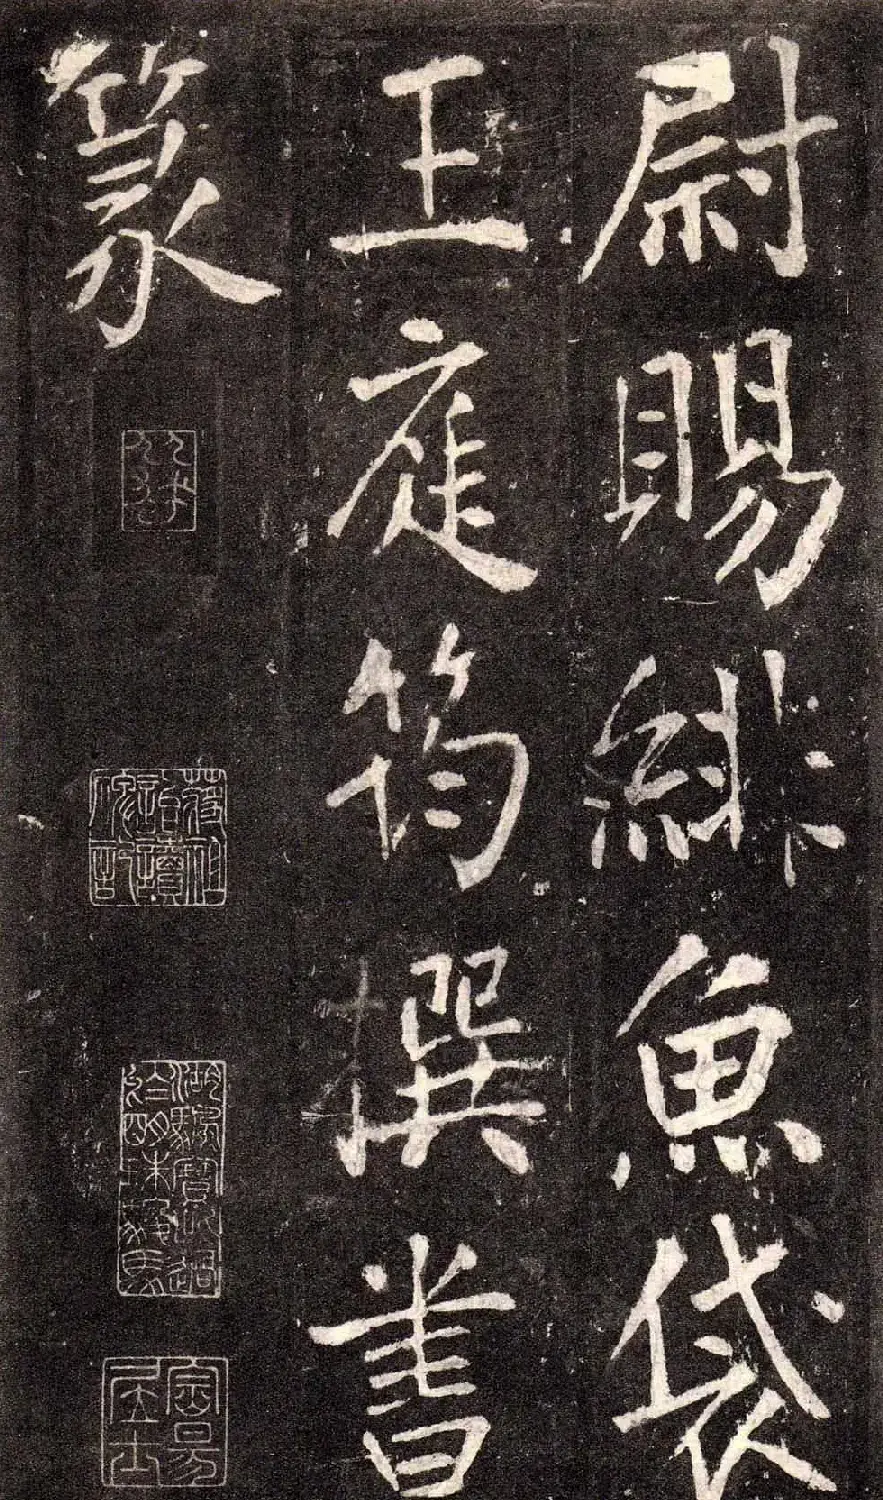 尉賜緋魚袋
王庭筠撰書
篆